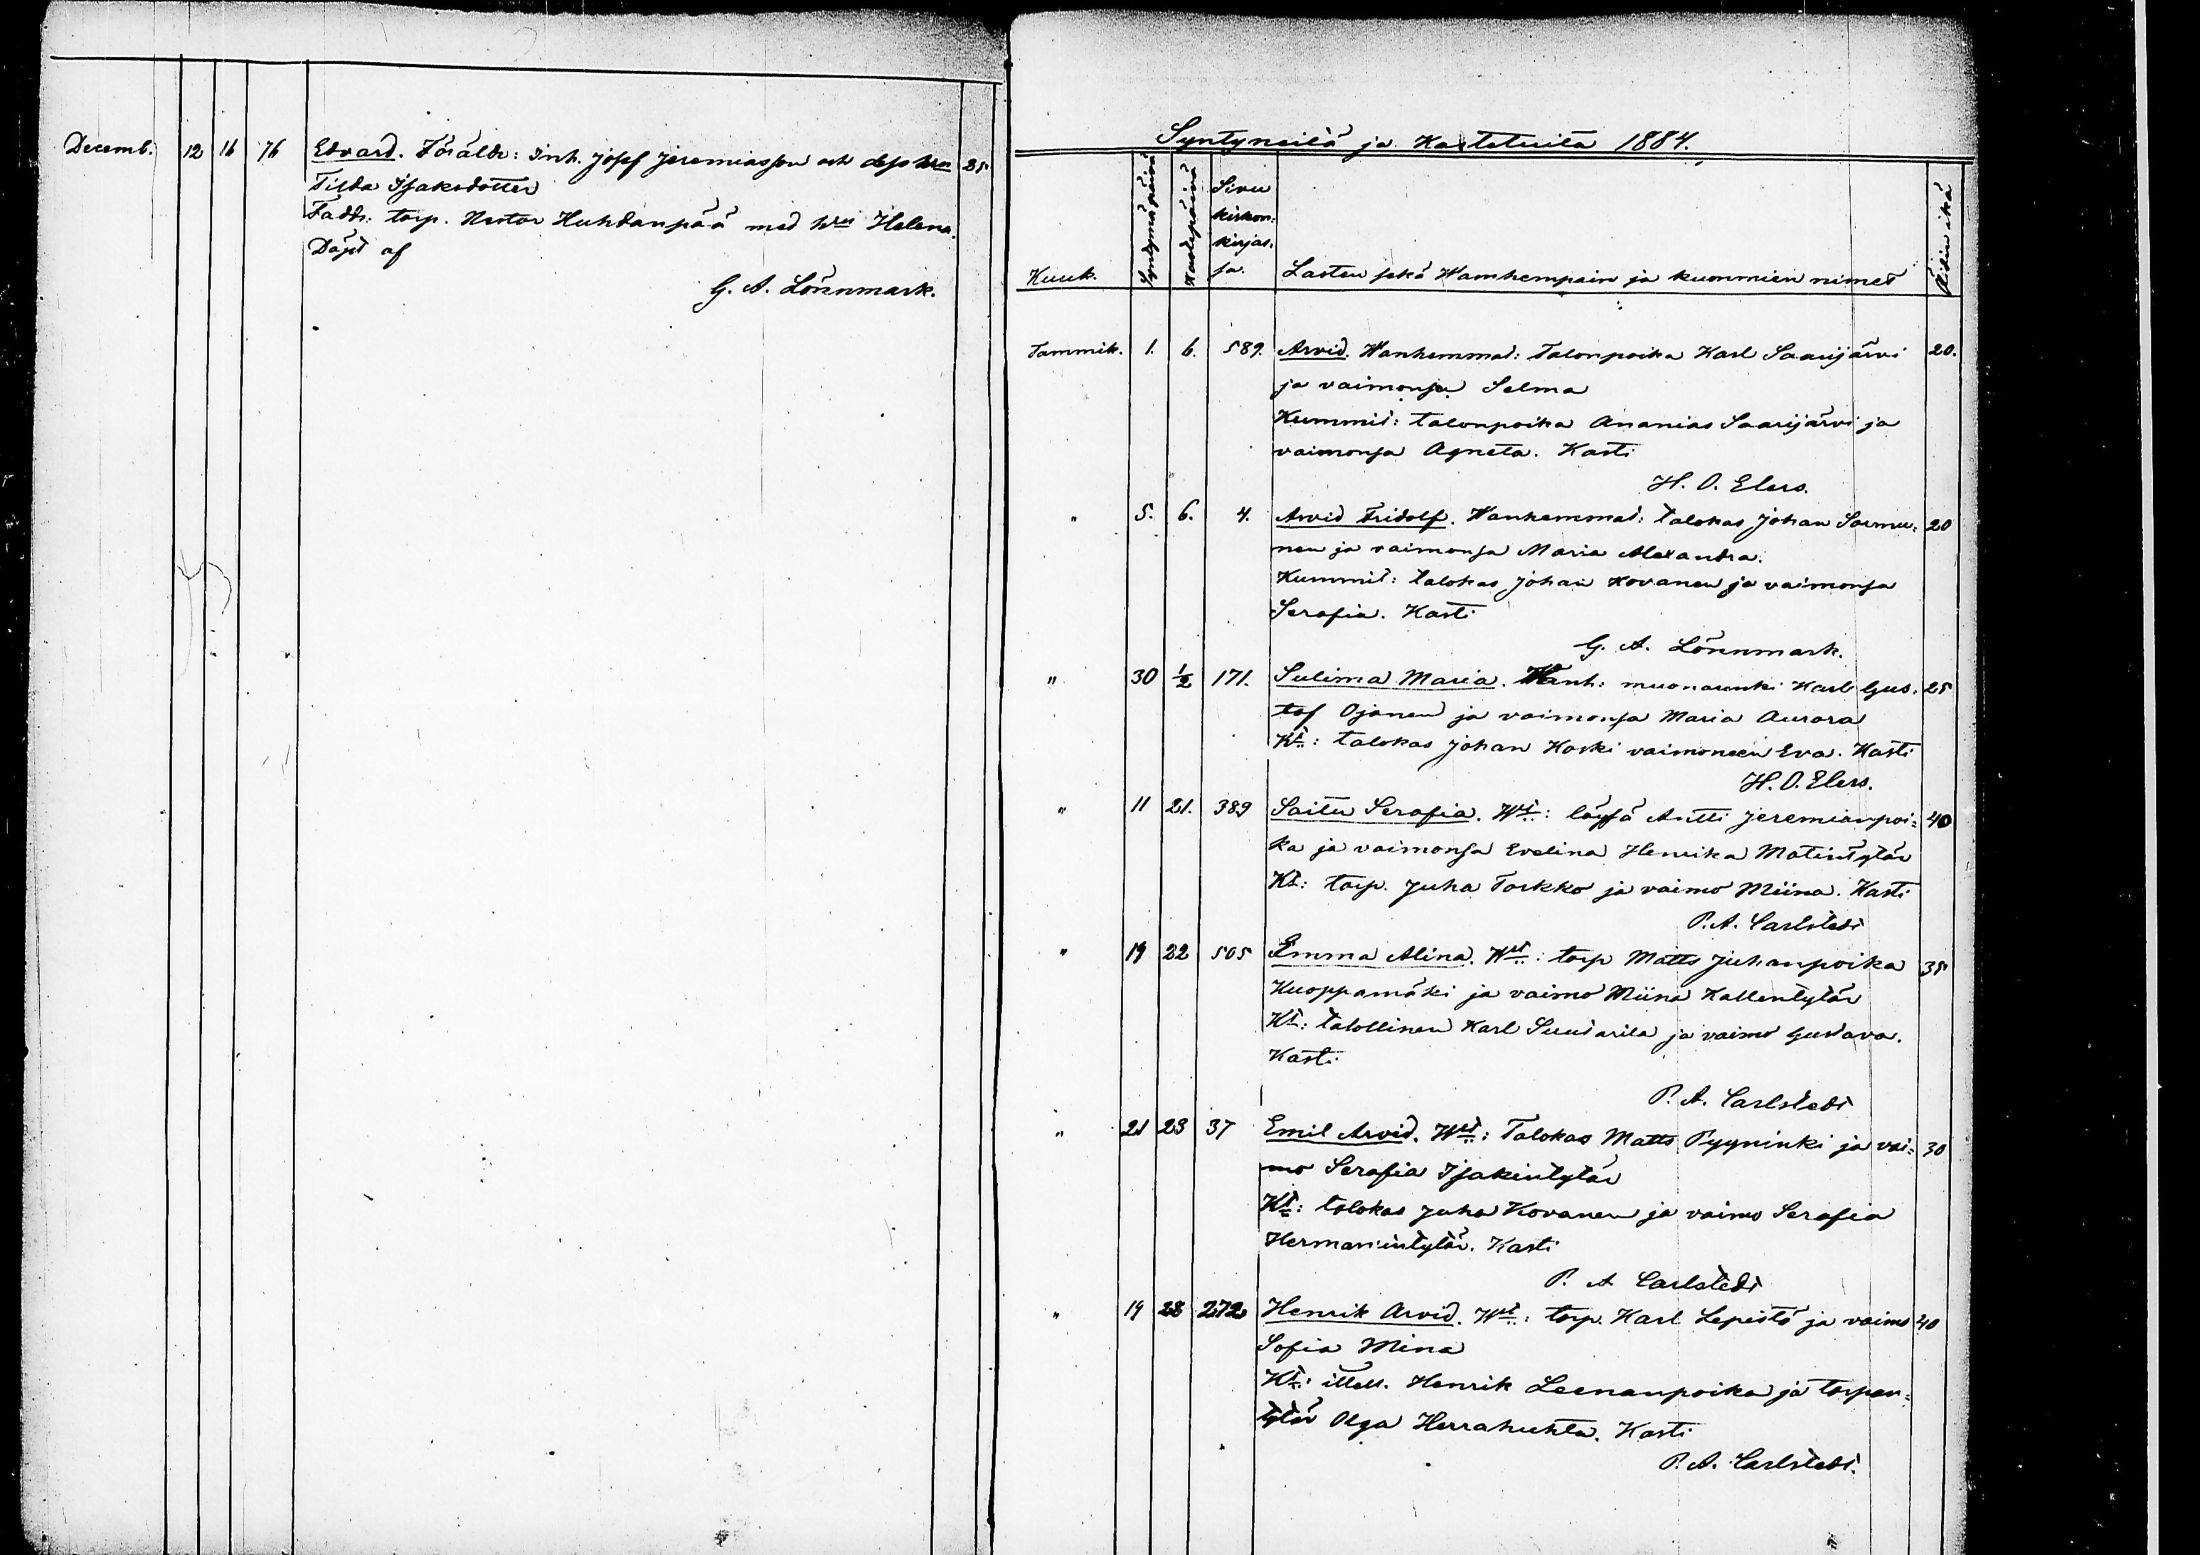 Decemb. 12 16 76 Edvard. Föräldr: Inh. Josef Jeremiasson och dess hru 25
Tilda Isaksdotter
Fadd: torp. Nestor Huhdanpää med hru Helena.
Döpt af
G. A. Lönnmark.
Syntyneitä ja Kastetuita 1884.
Kuuk. Syntymäpäivä Kastepäivä Sivu kirkon- kirjas- sa. Lasten sekä Wanhempain ja kummien nimet Äidin ikä
Tammik. 1. 6. 589. Arvid. Wanhemmat: Talonpoika Karl Saarijärvi 20.
ja vaimonsa Selma
Kummit: talonpoika Ananias Saarijärvi ja
vaimonsa Agneta. Kasti
H. O. Elers.
" 5. 6. 4. Arvid Fridolf. Wanhemmat: talokas Johan Sormu- 20
nen ja vaimonsa Maria Alexandra.
Kummit: talokas Johan Kovanen ja vaimonsa
Serafia. Kasti
G. A. Lönnmark.
" 30 1/2 171. Sulima Maria. Wanh: muonarenki Karl Gus- 25
taf Ojanen ja vaimonsa Maria Aurora
Kt: talokas Johan Koski vaimoneen Eva. Kasti
H. O. Elers.
" 11 21. 389 Saitu Serafia. Wt: löysä Antti Jeremianpoi- 40
ka ja vaimonsa Evelina Henrika Matintytär
Kt: torp. Juha Torkko ja vaimo Miina. Kasti
P. A. Carlstedt
" 19 22 505 Emma Alina. Wt: torp Matts Juhanpoika 35
Kuoppamäki ja vaimo Miina Kallentytär
Kt: talollinen Karl Suutarila ja vaimo Gustava.
Kasti
P. A. Carlstedt
" 21 23 37 Emil Arvid. Wt: Talokas Matts Pyyninki ja vai- 30
mo Serafia Isakintytär
Kt: talokas Juha Kovanen ja vaimo Serafia
Hermanintytär. Kasti
P. A Carlstedt
" 19 28 272 Henrik Arvid. Wt: torp. Karl Lepistö ja vaimo 40
Sofia Mina
Kt: ittell. Henrik Leenanpoika ja torpan-
tytär Olga Herrahuhta. Kasti
P. A. Carlstedt.